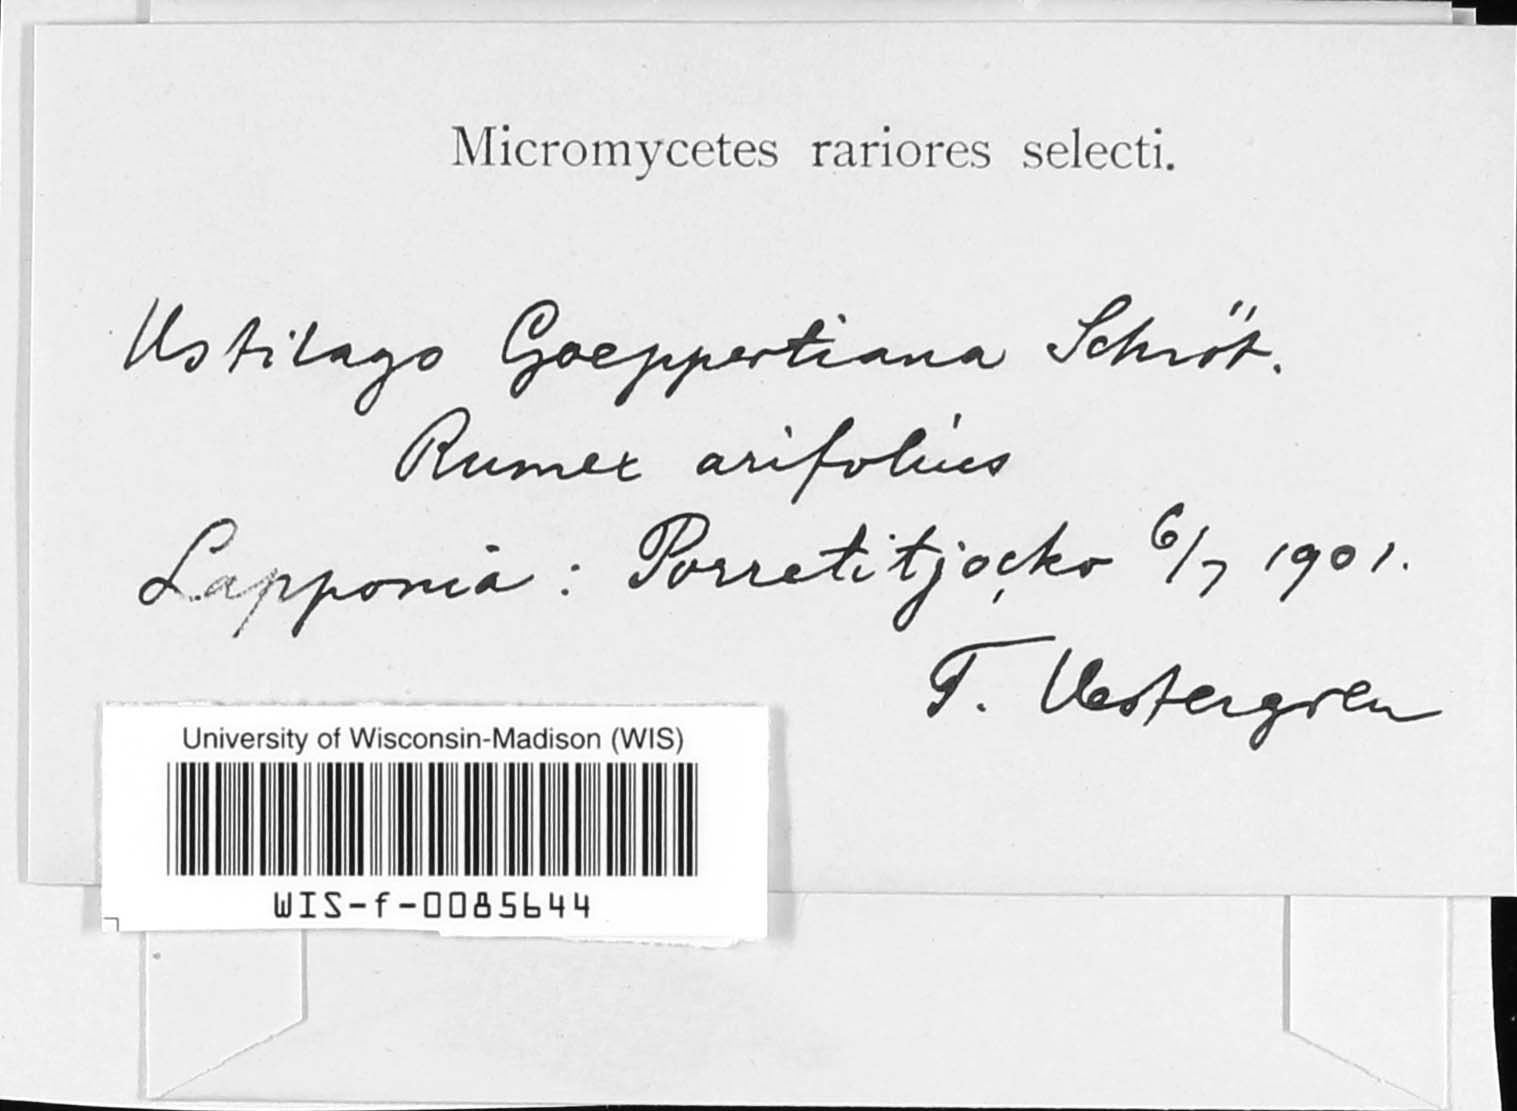 Micromycetes rariores selecti.
Ustilago Goeppertiana Schröt.
Rumex arifolius
Lapponia: Porretitjocko 6/7 1901.
T. Vestergren
University of Wisconsin-Madison (WIS)
WIS-f-0085644